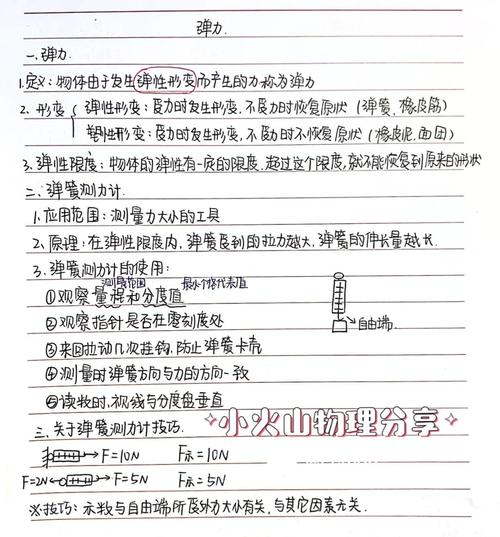 弹力.
一.弹力.
1.定义:物体由于发生弹性形变而产生的力称为弹力
2.形变 弹性形变:受力时发生形变,不受力时恢复原状(弹簧、橡皮筋)
塑性形变:受力时发生形变,不受力时不恢复原状(橡皮泥.面团)
3.弹性限度:物体的弹性有一定的限度,超过这个限度,就不能恢复到原来的形状
二.弹簧测力计.
1.应用范围:测量力大小的工具
2.原理:在弹性限度内,弹簧受到的拉力越大,弹簧的伸长量越长.
3.弹簧测力计的使用:
测量范围 最小个格代表值
①观察量程和分度值
②观察指针是否在零刻度处
自由端.
③来回拉动几次挂钩,防止弹簧卡壳
④测量时弹簧方向与力的方向一致
⑤读数时,视线与分度盘垂直
小火山物理分享
三.关于弹簧测力计技巧.
F=10N F示=10N
F=2N F=5N F示=5N
※技巧:示数与自由端所受外力大小有关,与其它因素无关.